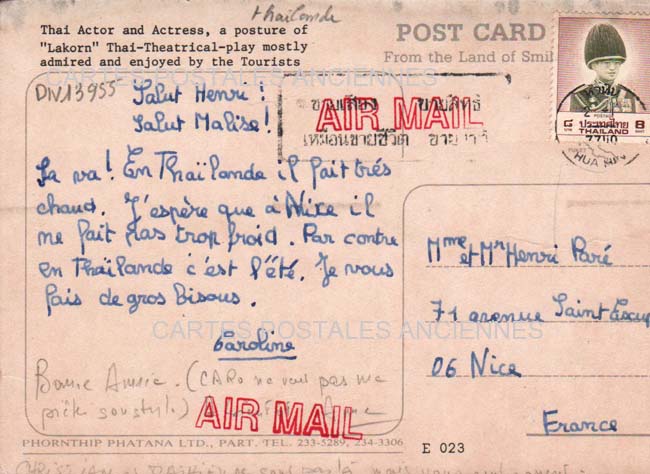 thaïlande
Thai Actor and Actress, a posture of
"Lakorn" Thai-Theatrical-play mostly
admired and enjoyed by the Tourists
POST CARD
From the Land of Smil
CARTES POSTALES ANCIENNES
DIV13955
Salut Henri!
Salut Malise!
AIR MAIL
ขายเสียง ขายสิทธิ์
เหมือนขายชีวิต ขายชาติ
ประเทศไทย
THAILAND
8
POSTAGE
หัวหิน
77110
HUA HIN
Sa va! En Thaïlande il fait très
chaud. J'espère que à Nice il
me fait pas trop froid. Par contre
en Thaïlande c'est l'été. Je vous
fais de gros bisous.
Caroline
Mme et Mr Henri Paré
71 avenue Saint Exup
06 Nice
France
CARTES POSTALES ANCIENNES
Bonne Année. (CARO ne veut pas me
son stylo)
AIR MAIL
PHORNTHIP PHATANA LTD., PART. TEL. 233-5289, 234-3306
E 023